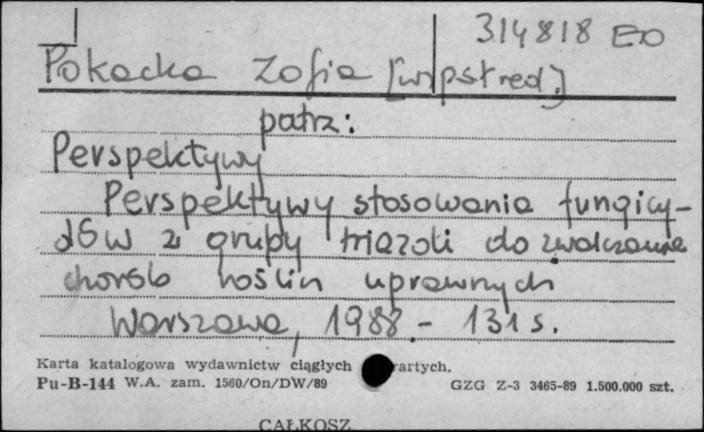 314818 ED
Pokacka Zofia [wpst red.]
patrz:
Perspektywy
Perspektywy stosowania fungicy-
dów z grupy triazoli do zwalczania
chorób roślin uprawnych
Warszawa, 1988. - 131 s.
Karta katalogowa wydawnictw ciągłych wartych.
Pu-B-144 W.A. zam. 1560/On/DW/89 GZG Z-3 3465-89 1.500.000 szt.
CAŁKOSZ